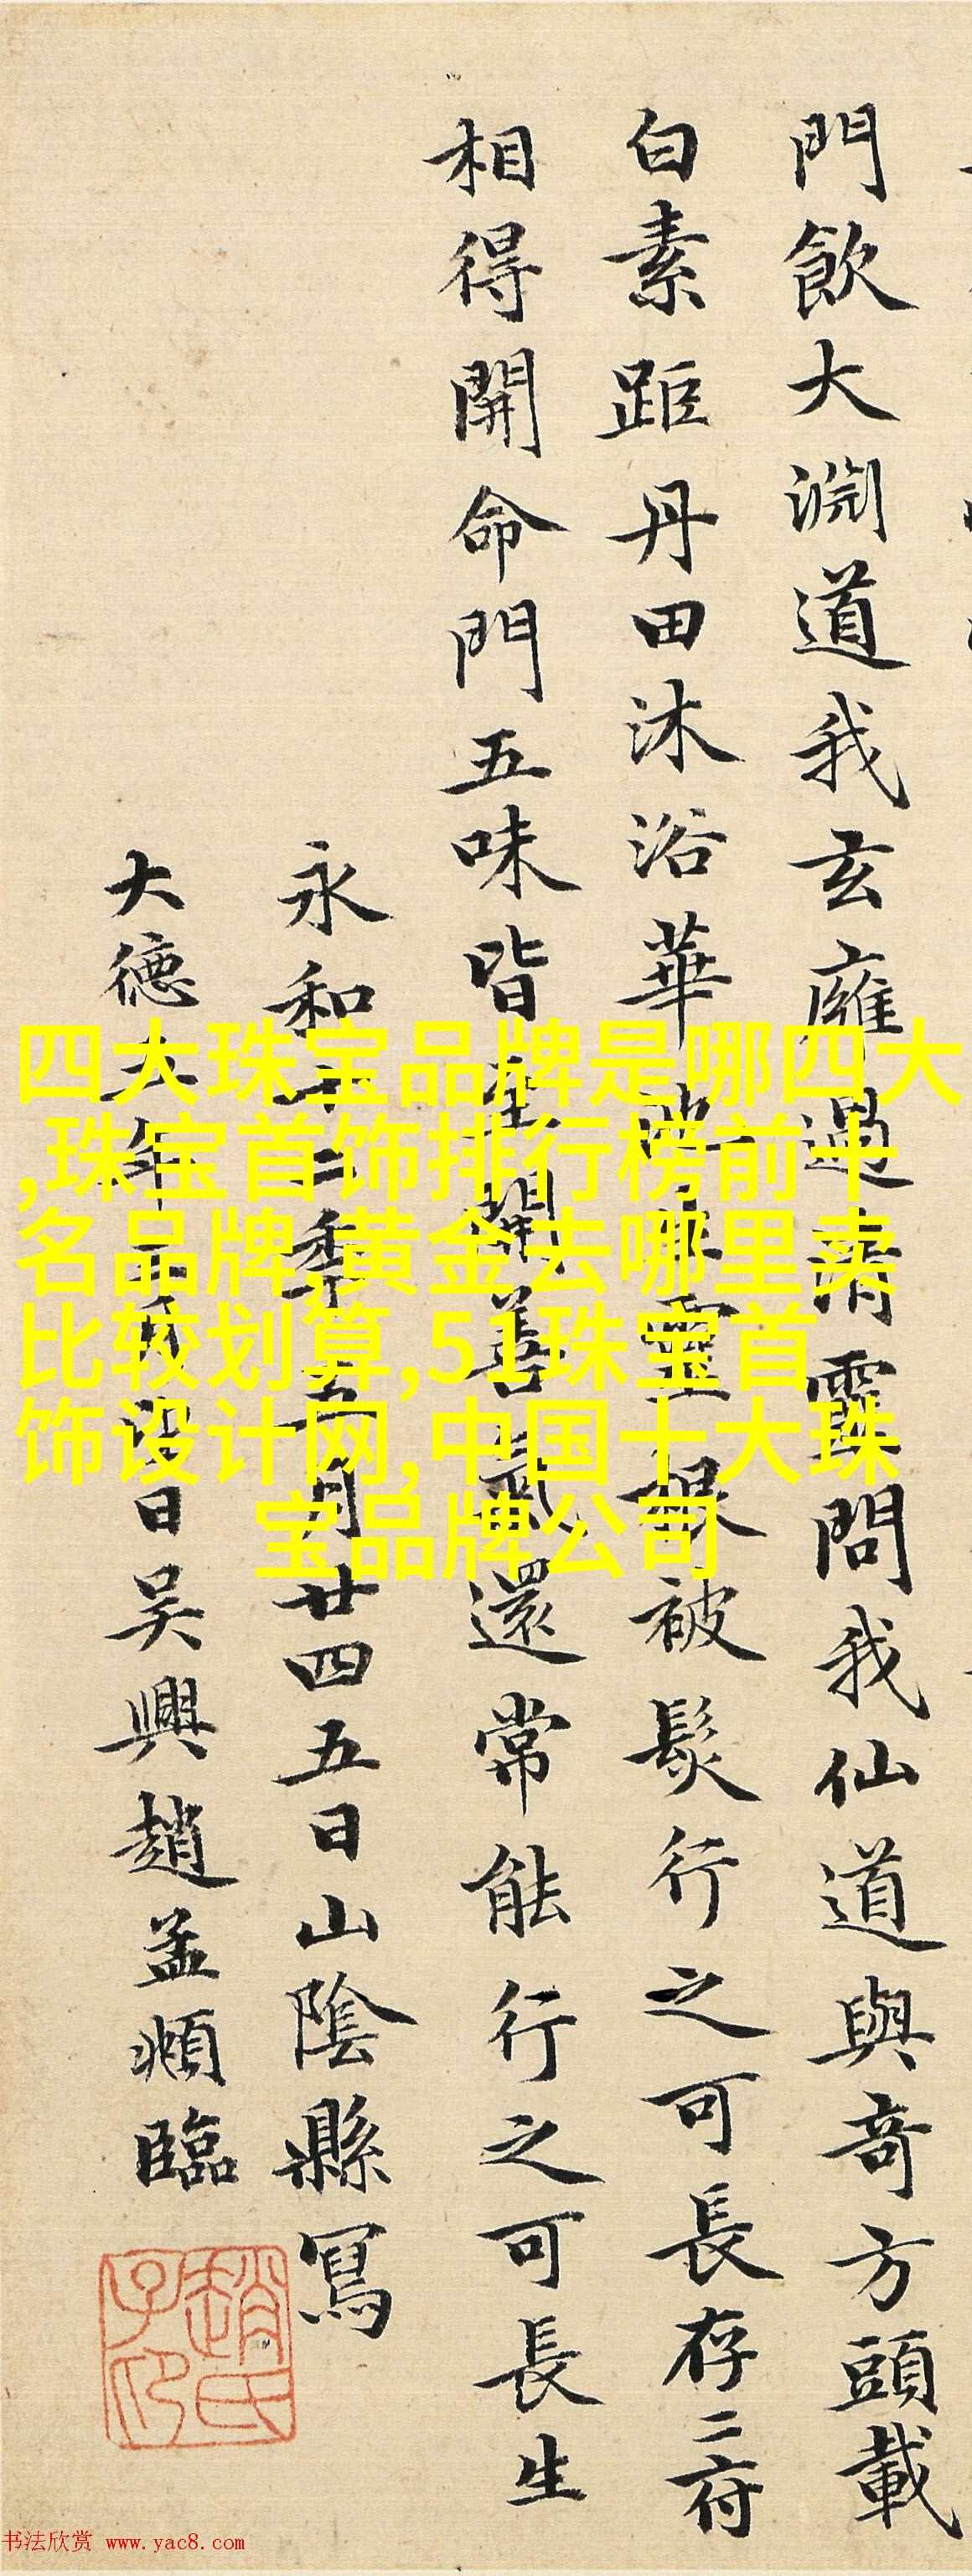 門飲大淵道我玄廱過清霞問我仙道與奇方頭載
白素距丹田沐浴華池生靈根被髮行之可長存二府
相得開命門五味皆至開善氣還常能行之可長生
永和十二季五月廿四五日山陰縣寫
大德年月日吴興趙孟頫臨
趙氏子昂
四大珠宝品牌是哪四大
,珠宝首饰排行榜前十
名品牌,黄金去哪里卖
比较划算,51珠宝首
饰设计网,中国十大珠
宝品牌公司
书法欣赏 www.yac8.com